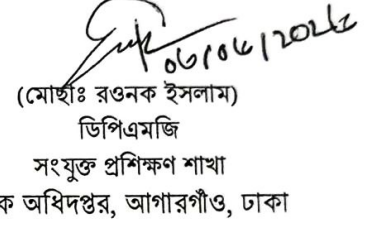 (মোছাঃ রওনক ইসলাম)
ডিপিএমজি
সংযুক্ত প্রশিক্ষণ শাখা
ক অধিদপ্তর, আগারগাঁও, ঢাকা